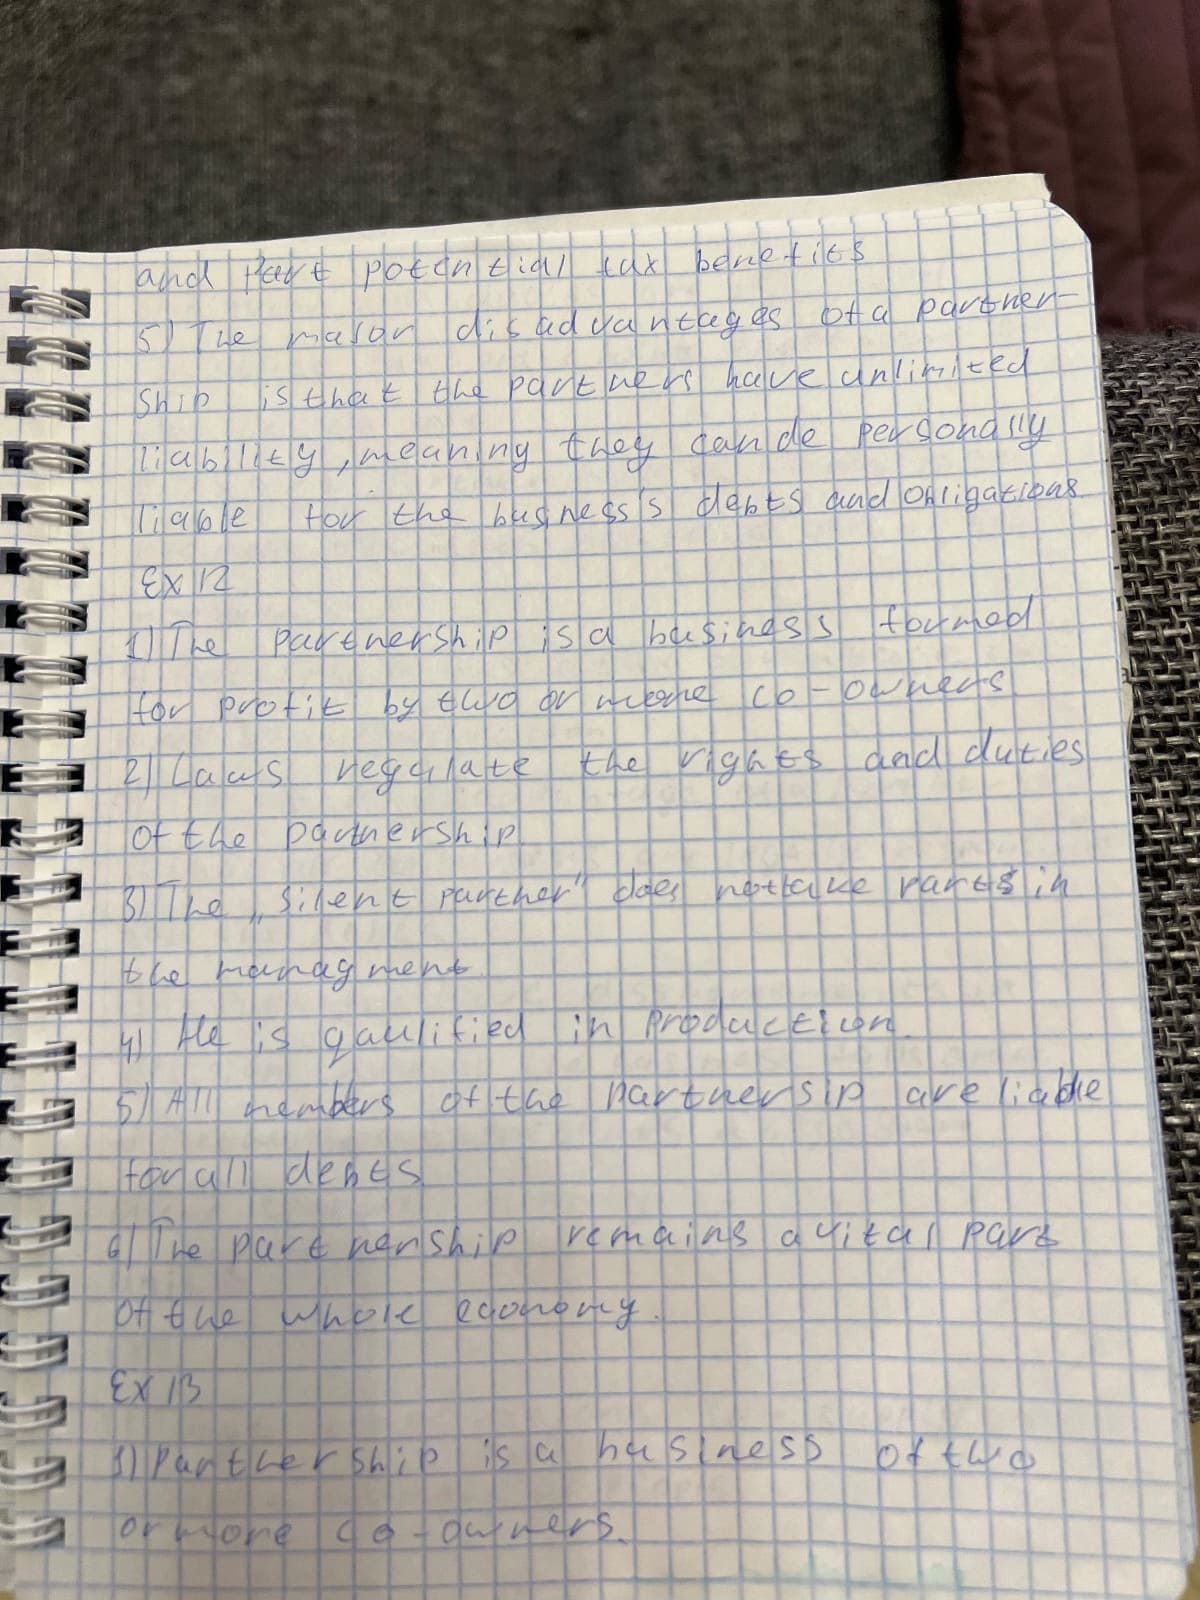 and part potential tax benefits
5) The major disadvantages of a partner-
ship is that the partners have unlimited
liability, meaning they can de personally
liable for the business's debts and obligations
Ex 12
1) The partnership is a business formed
for profit by two or more co-owners
2) Laws regulate the rights and duties
of the partnership
3) The „silent partner" does not take parts in
the managment
4) He is qaulified in production.
5) All members of the partnersip are liable
for all debts
6) The partnership remains a vital part
of the whole economy.
Ex 13
1) Partnership is a business of two
or more co-owners.